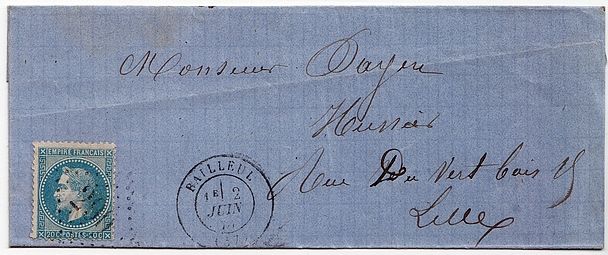 Monsieur Dayen
Huissier
Rue Du Vert Bois 15
Lille
EMPIRE FRANÇAIS
20 C POSTES 20 C
BAILLEUL
1E 2
JUIN